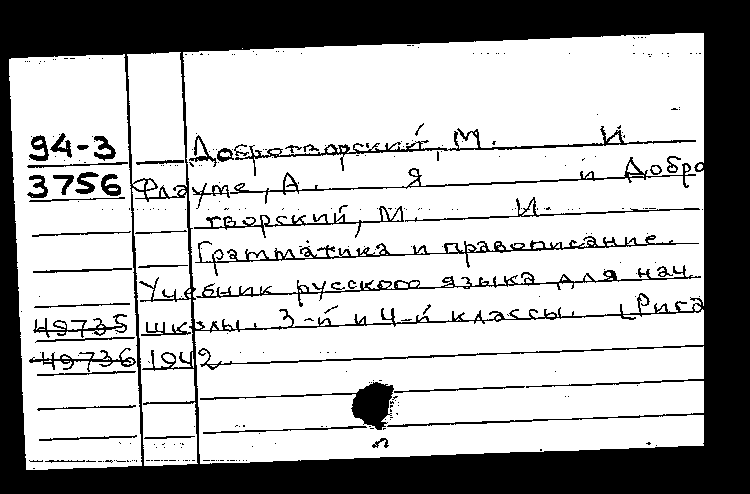 94-3 Добротворский, М. И
3756 Флауме, А. Я и Добро
творский, М. И.
Грамматика и правописание.
Учебник русского языка для нач.
49735 школы. 3-й и 4-й классы. [Рига
49736 1942.